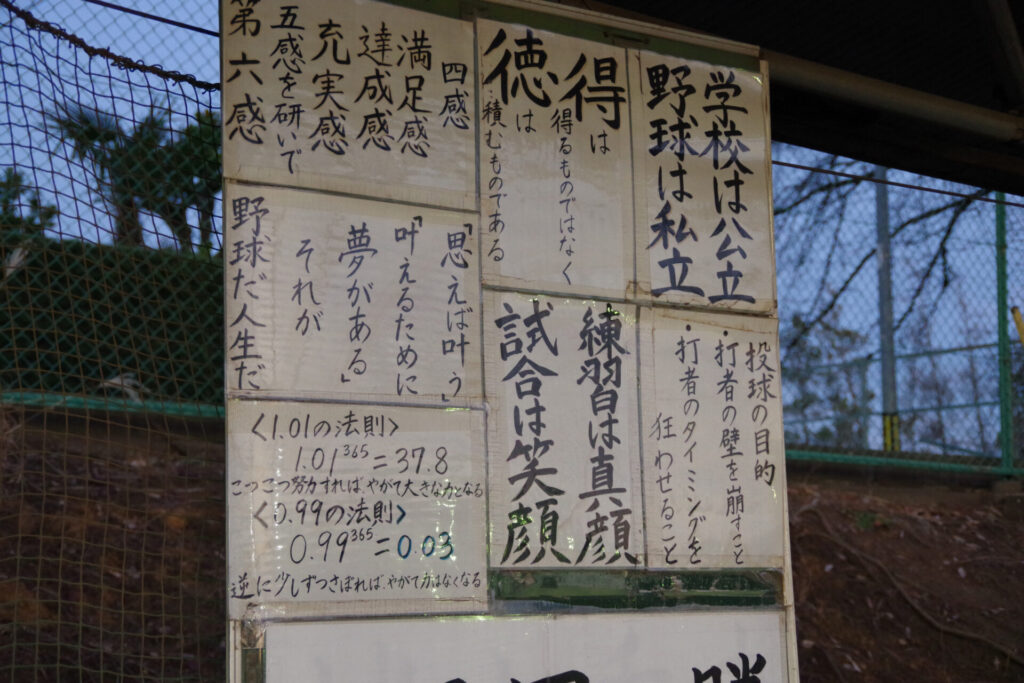 学校は公立
野球は私立
得は
得るものではなく
徳は
積むものである
四感
満足感
達成感
充実感
五感を研いで
第六感
投球の目的
・打者の壁を崩すこと
・打者のタイミングを
狂わせること
練習は真顔
試合は笑顔
「思えば叶う」
「叶えるために
夢がある」
それが
野球だ人生だ
〈1.01の法則〉
1.01³⁶⁵=37.8
こつこつ努力すれば、やがて大きな力となる
〈0.99の法則〉
0.99³⁶⁵=0.03
逆に少しずつさぼれば、やがて力はなくなる
勝